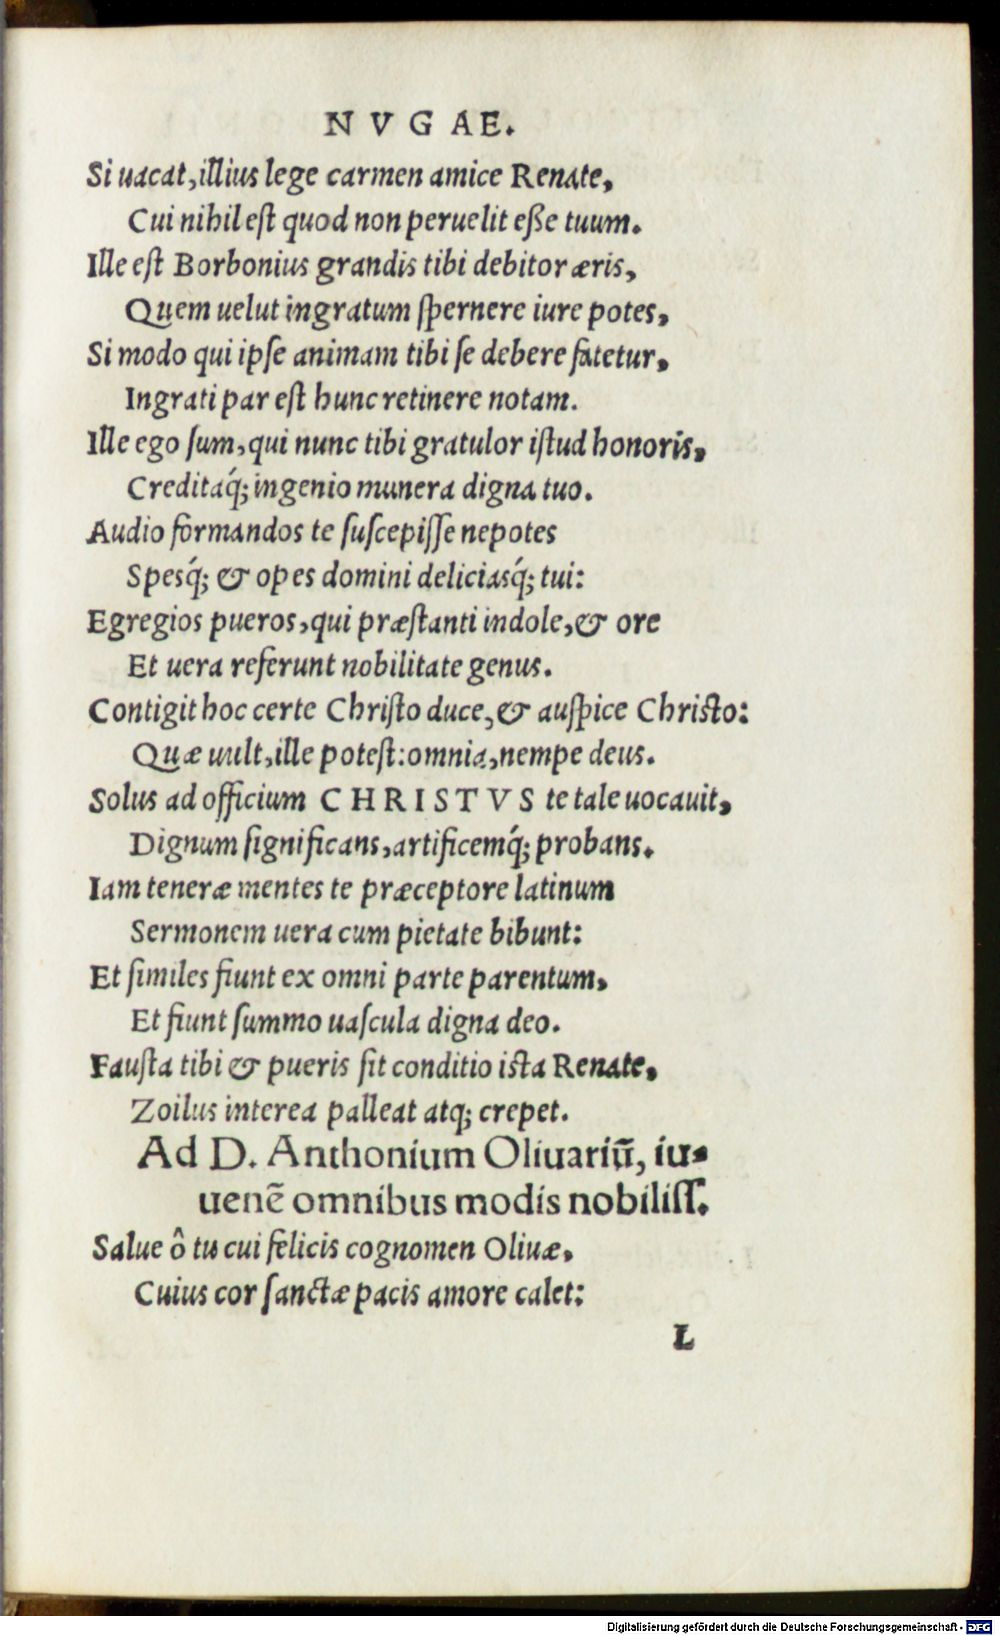 NVGAE.
Si uacat, illius lege carmen amice Renate,
Cui nihil est quod non peruelit eße tuum.
Ille est Borbonius grandis tibi debitor æris,
Quem uelut ingratum spernere iure potes,
Si modo qui ipse animam tibi se debere fatetur,
Ingrati par est hunc retinere notam.
Ille ego sum, qui nunc tibi gratulor istud honoris,
Creditáq; ingenio munera digna tuo.
Audio formandos te suscepisse nepotes
Spesq́; & opes domini deliciasq́; tui:
Egregios pueros, qui præstanti indole, & ore
Et uera referunt nobilitate genus.
Contigit hoc certe Christo duce, & auspice Christo:
Quæ uult, ille potest: omnia, nempe deus.
Solus ad officium CHRISTVS te tale uocauit,
Dignum significans, artificemq́; probans.
Iam teneræ mentes te præceptore latinum
Sermonem uera cum pietate bibunt:
Et similes fiunt ex omni parte parentum,
Et fiunt summo uascula digna deo.
Fausta tibi & pueris sit conditio ista Renate,
Zoilus interea palleat atq; crepet.
Ad D. Anthonium Oliuariũ, iu-
uenẽ omnibus modis nobiliss.
Salue ô tu cui felicis cognomen Oliuæ,
Cuius cor sanctæ pacis amore calet:
L
Digitalisierung gefördert durch die Deutsche Forschungsgemeinschaft - DFG